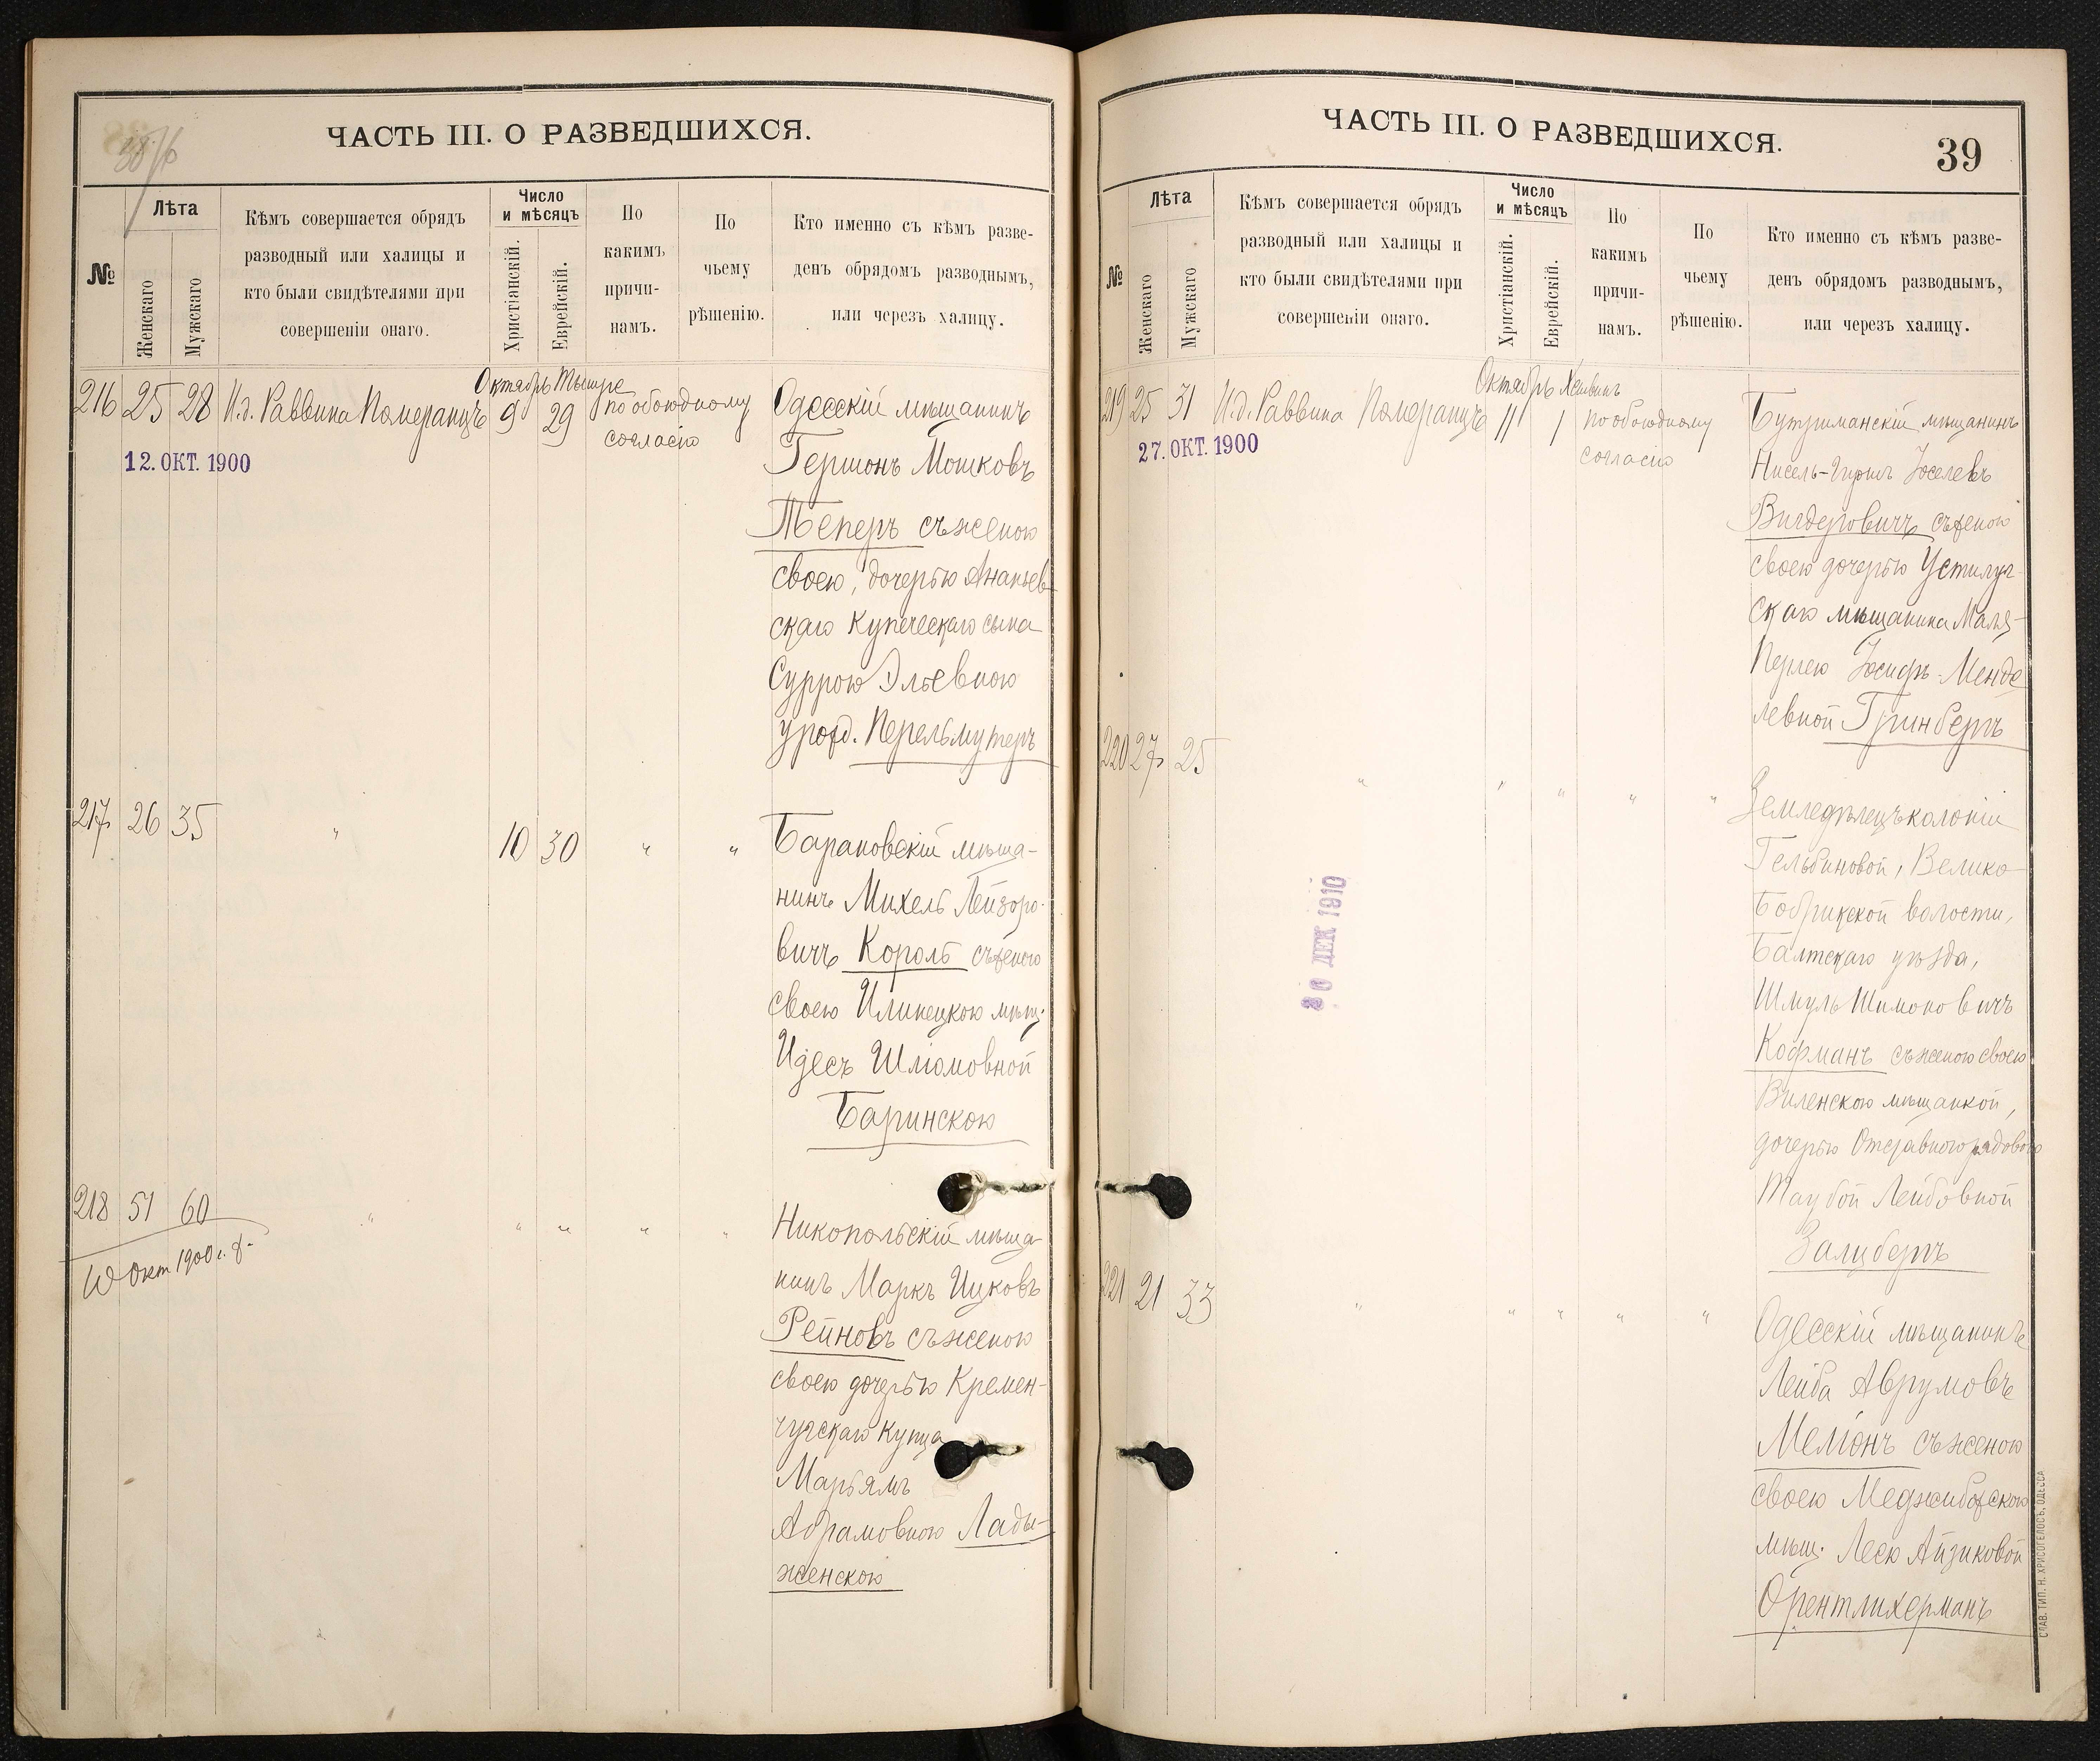 ЧАСТЬ III. О РАЗВЕДШИХСЯ.
№
Лѣта
Женскаго
Мужскаго
Кѣмъ совершается обрядъ
разводный или халицы и
кто были свидѣтелями при
совершеніи онаго.
Число
и мѣсяцъ
Христіанскій.
Еврейскій.
По
какимъ
причи-
намъ.
По
чьему
рѣшенію.
Кто именно съ кѣмъ разве-
денъ обрядомъ разводнымъ,
или черезъ халицу.
Октябрь Тышре
216 25 28 И.д. Раввина Померанцъ 9 29 по обоюдному
согласію
12. ОКТ. 1900
Одесскій мѣщанинъ
Гершонъ Мошковъ
Теперъ съ женою
своею, дочерью Ананьев-
скаго купеческаго сына
Суррою Эльевною
урожд. Перельмутеръ
217 26 35 " 10 30 " "
Барановскій мѣща-
нинъ Михель Лейзоро-
вичъ Король съ женою
своею Илинецкою мѣщ.
Идесъ Шліомовной
Баринскою
218 51 60 " " " " "
10 Окт 1900 г.
Никопольскій мѣща-
нинъ Маркъ Ицковъ
Рейновъ съ женою
своею дочерью Кремен-
чугскаго купца
Марьямъ
Абрамовною Лады-
женскою
ЧАСТЬ III. О РАЗВЕДШИХСЯ.
39
№
Лѣта
Женскаго
Мужскаго
Кѣмъ совершается обрядъ
разводный или халицы и
кто были свидѣтелями при
совершеніи онаго.
Число
и мѣсяцъ
Христіанскій.
Еврейскій.
По
какимъ
причи-
намъ.
По
чьему
рѣшенію.
Кто именно съ кѣмъ разве-
денъ обрядомъ разводнымъ,
или черезъ халицу.
Октябрь Хешвинъ
219 25 31 И.д. Раввина Померанцъ 11 1 по обоюдному
согласію
27. ОКТ. 1900
мѣщанинъ
Нисель- Іоселевъ
Вигдеровичъ съ женою
своею дочерью Устилуг-
скаго мѣщанина Маля-
Перлею Іосифъ-Менде
левной Гринбергъ
220 27 25 " " " " "
Земледѣлецъ колоніи
Гельбиновой, Велико-
Бобрикской волости,
Балтскаго уѣзда,
Шмуль Шимоновичъ
Кофманъ съ женою своею
Виленскою мѣщанкой,
дочерью Отставного рядового
Таубой Лейбовной
Залцбергъ
20 ДЕК 1910
221 21 33 " " " " "
Одесскій мѣщанинъ
Лейба Аврумовъ
Меліонъ съ женою
своею Меджибожскою
мѣщ. Лесю Айзиковой
Орентлихерманъ
СЛАВ. ТИП. Н. ХРИСОГЕЛОСЪ, ОДЕССА